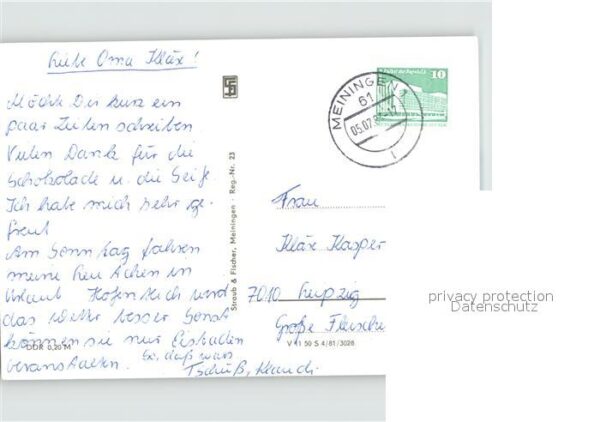 Liebe Oma Kläx!
Möchte Dir kurz ein
paar Zeilen schreiben
Vielen Dank für die
Schokolade u. die Seife
Ich habe mich sehr ge-
freut
Am Sonntag fahren
meine Leutchen in
Urlaub Hoffentlich wird
das Wetter besser Sonst
können sie nur Eisbaden
veranstalten.
Tschüß, Klaudi
DDR 0,20 M
Straub & Fischer, Meiningen · Reg.-Nr. 23
V 11 50 S 4/81/3028
10
MEININGEN
61
05.07.8
1
Frau
Kläx Kasper
7010 Leipzig
Große Fleischer
privacy protection
Datenschutz